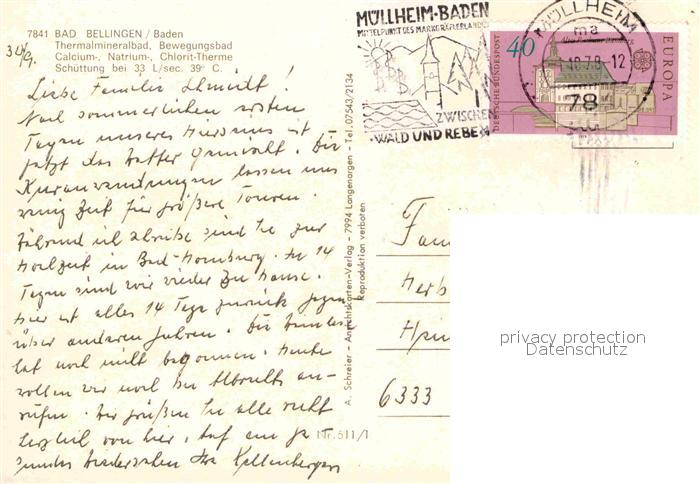 7841 BAD BELLINGEN / Baden
Thermalmineralbad, Bewegungsbad
Calcium-, Natrium-, Chlorit-Therme
Schüttung bei 33 L/sec. 39° C.
Liebe Familie Schmidt!
Nach sommerlichen ersten
Tagen unseres Hierseins ist
jetzt das Wetter gemischt. Die
Kuranwendungen lassen uns
wenig Zeit für größere Touren.
Während ich schreibe sind Sie zur
Hochzeit in Bad-Homburg. In 14
Tagen sind wir wieder zu Hause.
Hier ist alles 14 Tage zurück gegen
über anderen Jahren. Die
hat noch nicht begonnen. Heute
wollen wir noch bei Albrechts an-
rufen. Wir grüßen Sie alle recht
herzlich von hier. Auf ein
Wiedersehen Ihre Kellenbergers
A. Schreier - Ansichtskarten-Verlag - 7994 Langenargen - Tel. 07543/2134
Reproduktion verboten
Nr. 511/1
MÜLLHEIM·BADEN
MITTELPUNKT DES MARKGRÄFLERLANDES
ZWISCHEN
·WALD UND REBEN
MÜLLHEIM
ma
-12
78
40
DEUTSCHE BUNDESPOST
EUROPA
Fam
Herb
Hein
6333
privacy protection
Datenschutz